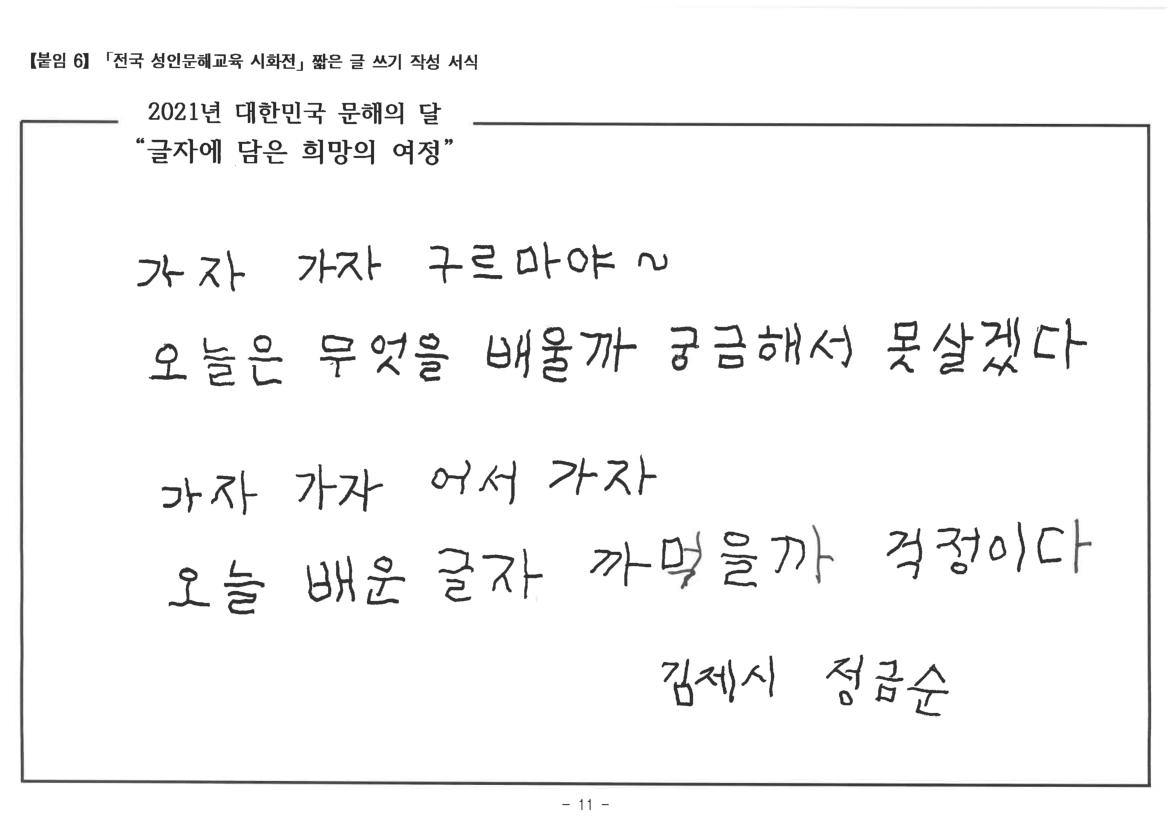 【붙임 6】 「전국 성인문해교육 시화전」 짧은 글 쓰기 작성 서식
2021년 대한민국 문해의 달
“글자에 담은 희망의 여정”
가자 가자 구르마야 ~
오늘은 무엇을 배울까 궁금해서 못살겠다
가자 가자 어서 가자
오늘 배운 글자 까먹을까 걱정이다
김제시 정금순
- 11 -